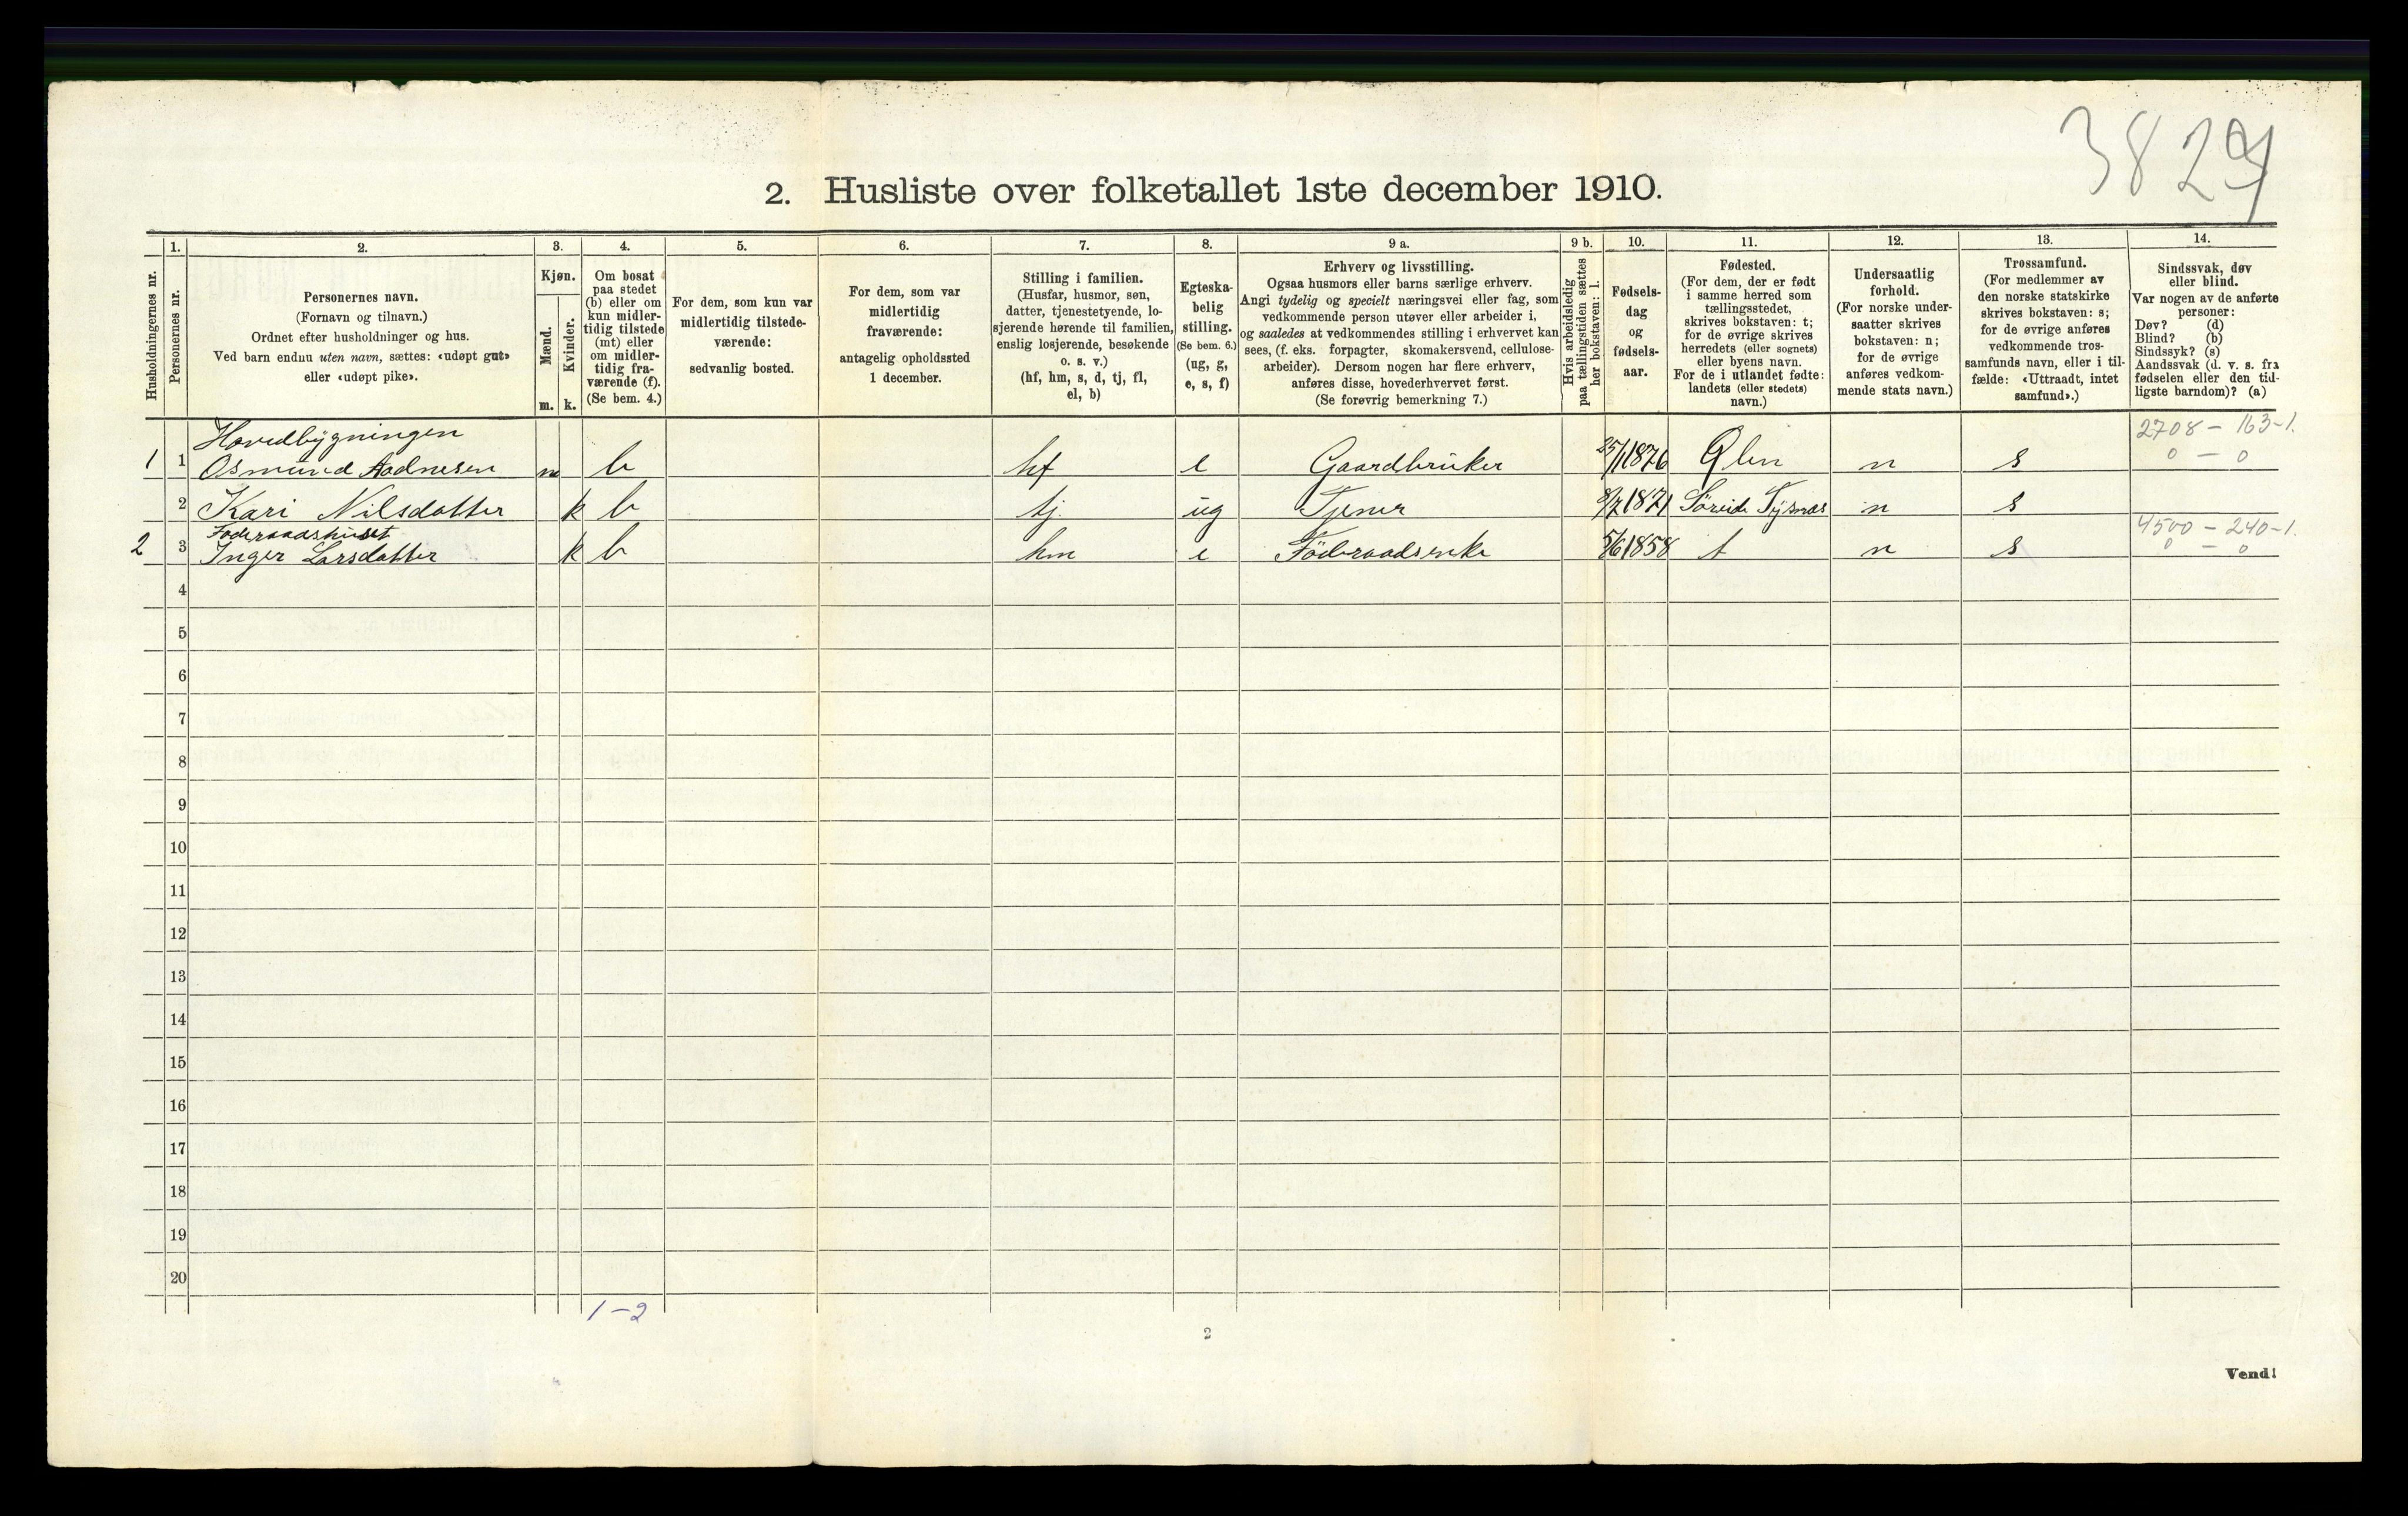 3829
2. Husliste over folketallet 1ste december 1910.
Husholdningernes nr.
1.
Personernes nr.
2.
Personernes navn.
(Fornavn og tilnavn.)
Ordnet efter husholdninger og hus.
Ved barn endnu uten navn, sættes: «udøpt gut»
eller «udøpt pike».
3.
Kjøn.
Mænd.
m.
Kvinder.
k.
4.
Om bosat
paa stedet
(b) eller om
kun midler-
tidig tilstede
(mt) eller
om midler-
tidig fra-
værende (f).
(Se bem. 4.)
5.
For dem, som kun var
midlertidig tilstede-
værende:
sedvanlig bosted.
6.
For dem, som var
midlertidig
fraværende:
antagelig opholdssted
1 december.
7.
Stilling i familien.
(Husfar, husmor, søn,
datter, tjenestetyende, lo-
sjerende hørende til familien,
enslig losjerende, besøkende
o. s. v.)
(hf, hm, s, d, tj, fl,
el, b)
8.
Egteska-
belig
stilling.
(Se bem. 6.)
(ug, g,
e, s, f)
9 a.
Erhverv og livsstilling.
Ogsaa husmors eller barns særlige erhverv.
Angi tydelig og specielt næringsvei eller fag, som
vedkommende person utøver eller arbeider i,
og saaledes at vedkommendes stilling i erhvervet kan
sees, (f. eks. forpagter, skomakersvend, cellulose-
arbeider). Dersom nogen har flere erhverv,
anføres disse, hovederhvervet først.
(Se forøvrig bemerkning 7.)
9 b.
Hvis arbeidsledig
paa tællingstiden sættes
her bokstaven: l.
10.
Fødsels-
dag
og
fødsels-
aar.
11.
Fødested.
(For dem, der er født
i samme herred som
tællingsstedet,
skrives bokstaven: t;
for de øvrige skrives
herredets (eller sognets)
eller byens navn.
For de i utlandet fødte:
landets (eller stedets)
navn.)
12.
Undersaatlig
forhold.
(For norske under-
saatter skrives
bokstaven: n;
for de øvrige
anføres vedkom-
mende stats navn.)
13.
Trossamfund.
(For medlemmer av
den norske statskirke
skrives bokstaven: s;
for de øvrige anføres
vedkommende tros-
samfunds navn, eller i til-
fælde: «Uttraadt, intet
samfund».)
14.
Sindssvak, døv
eller blind.
Var nogen av de anførte
personer:
Døv? (d)
Blind? (b)
Sindssyk? (s)
Aandssvak (d. v. s. fra
fødselen eller den tid-
ligste barndom)? (a)
Hovedbygningen 2708 - 163-1.
1 1 Osmund Aadnesen m b hf e Gaardbruker 25/11 1876 Ølen n s 0 - 0
2 Kari Nilsdatter k b tj ug Tjener 8/7 1871 Søreide Tysnes n s
Føderaadshuset 4500 - 240-1.
2 3 Inger Larsdatter k b hm e Føderaadsenke 5/6 1858 t n s 0 - 0
4
5
6
7
8
9
10
11
12
13
14
15
16
17
18
19
20
1-2
2
Vend!